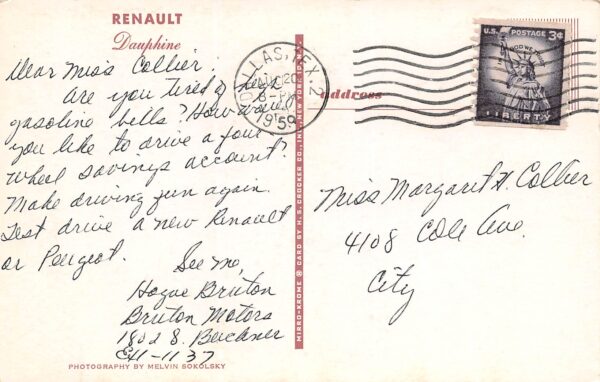 RENAULT
Dauphine
Dear Miss Collier:
Are you tired of high
gasoline bills? How would
you like to drive a four
wheel savings account?
Make driving fun again.
Test drive a new Renault
or Peugeot.
See me,
Hogue Bruton
Bruton Motors
1802 S. Buckner
EX1-1137
PHOTOGRAPHY BY MELVIN SOKOLSKY
MIRRO-KROME ® CARD BY H. S. CROCKER CO., INC., NEW YORK
DALLAS, TEX. 2
AUG 20
6-PM
1959
address
U.S. POSTAGE 3¢
IN GOD WE TRUST
LIBERTY
Miss Margaret H. Collier
4108 Cole Ave.
City